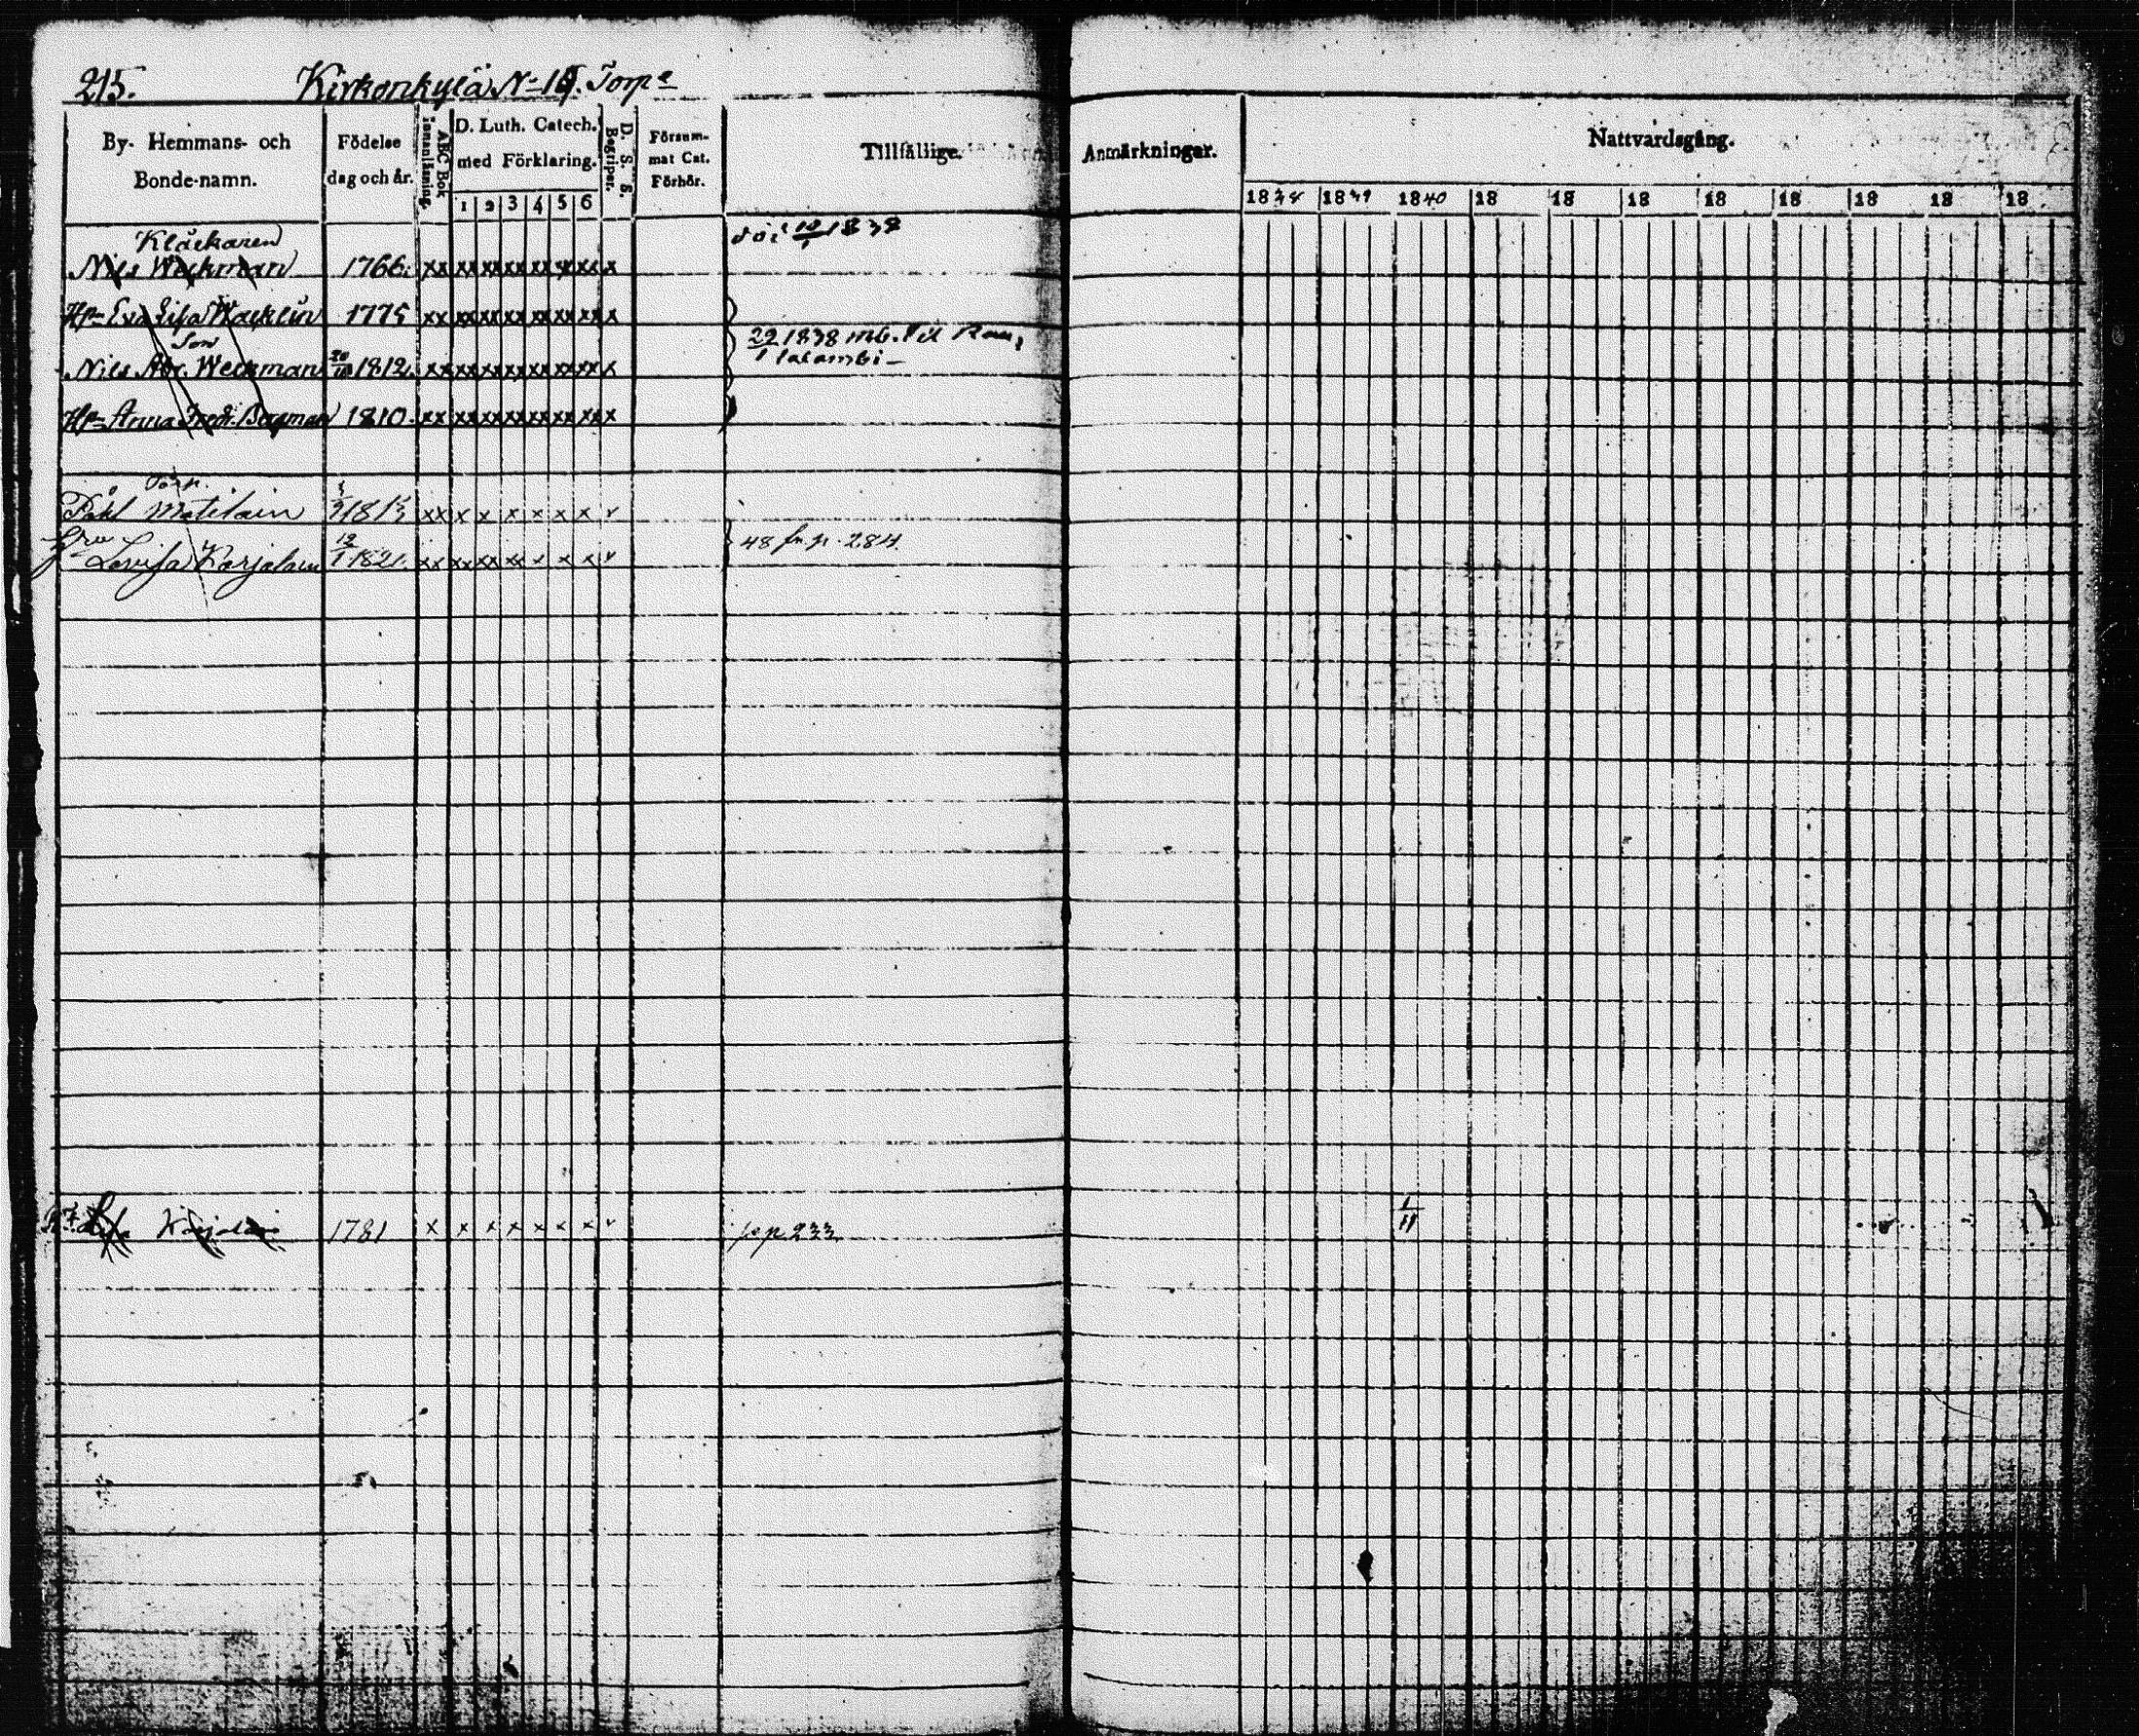 215. Kirkonkylä No 19. Torp
By- Hemmans- och Bonde-namn.
Födelse dag och år.
ABC Bok innanläsning.
D. Luth. Catech. med Förklaring.
1 2 3 4 5 6
D. S. B. Begriper.
Försummat Cat. Förhör.
Tillfällige.
Anmärkningar.
Nattvardsgång.
1838 1839 1840 18 18 18 18 18 18 18 18
Klåckaren
Nils Weckman 1766. xx xx xx xx xx xx xx x död 10/1 1838
Hu Eva Lisa Wacklin 1775 xx xx xx xx xx xx xx x
Son
Nils Abr. Weckman 1812. xx xx xx xx xx xx xx x 22/1 1838 mb. til Rau,
talambi
Hu Anna Fredr. Bergman 1810. xx xx xx xx xx xx xx x
Torp.
Påhl Matilain 1815 xx x x x x x x v
Hru
Lovisa Karjalain 12/1 1821. xx xx xx xx x x x v 48 fr. p. 284.
Lisa Karjalain 1781 x x x x x x x v p 233 1/11